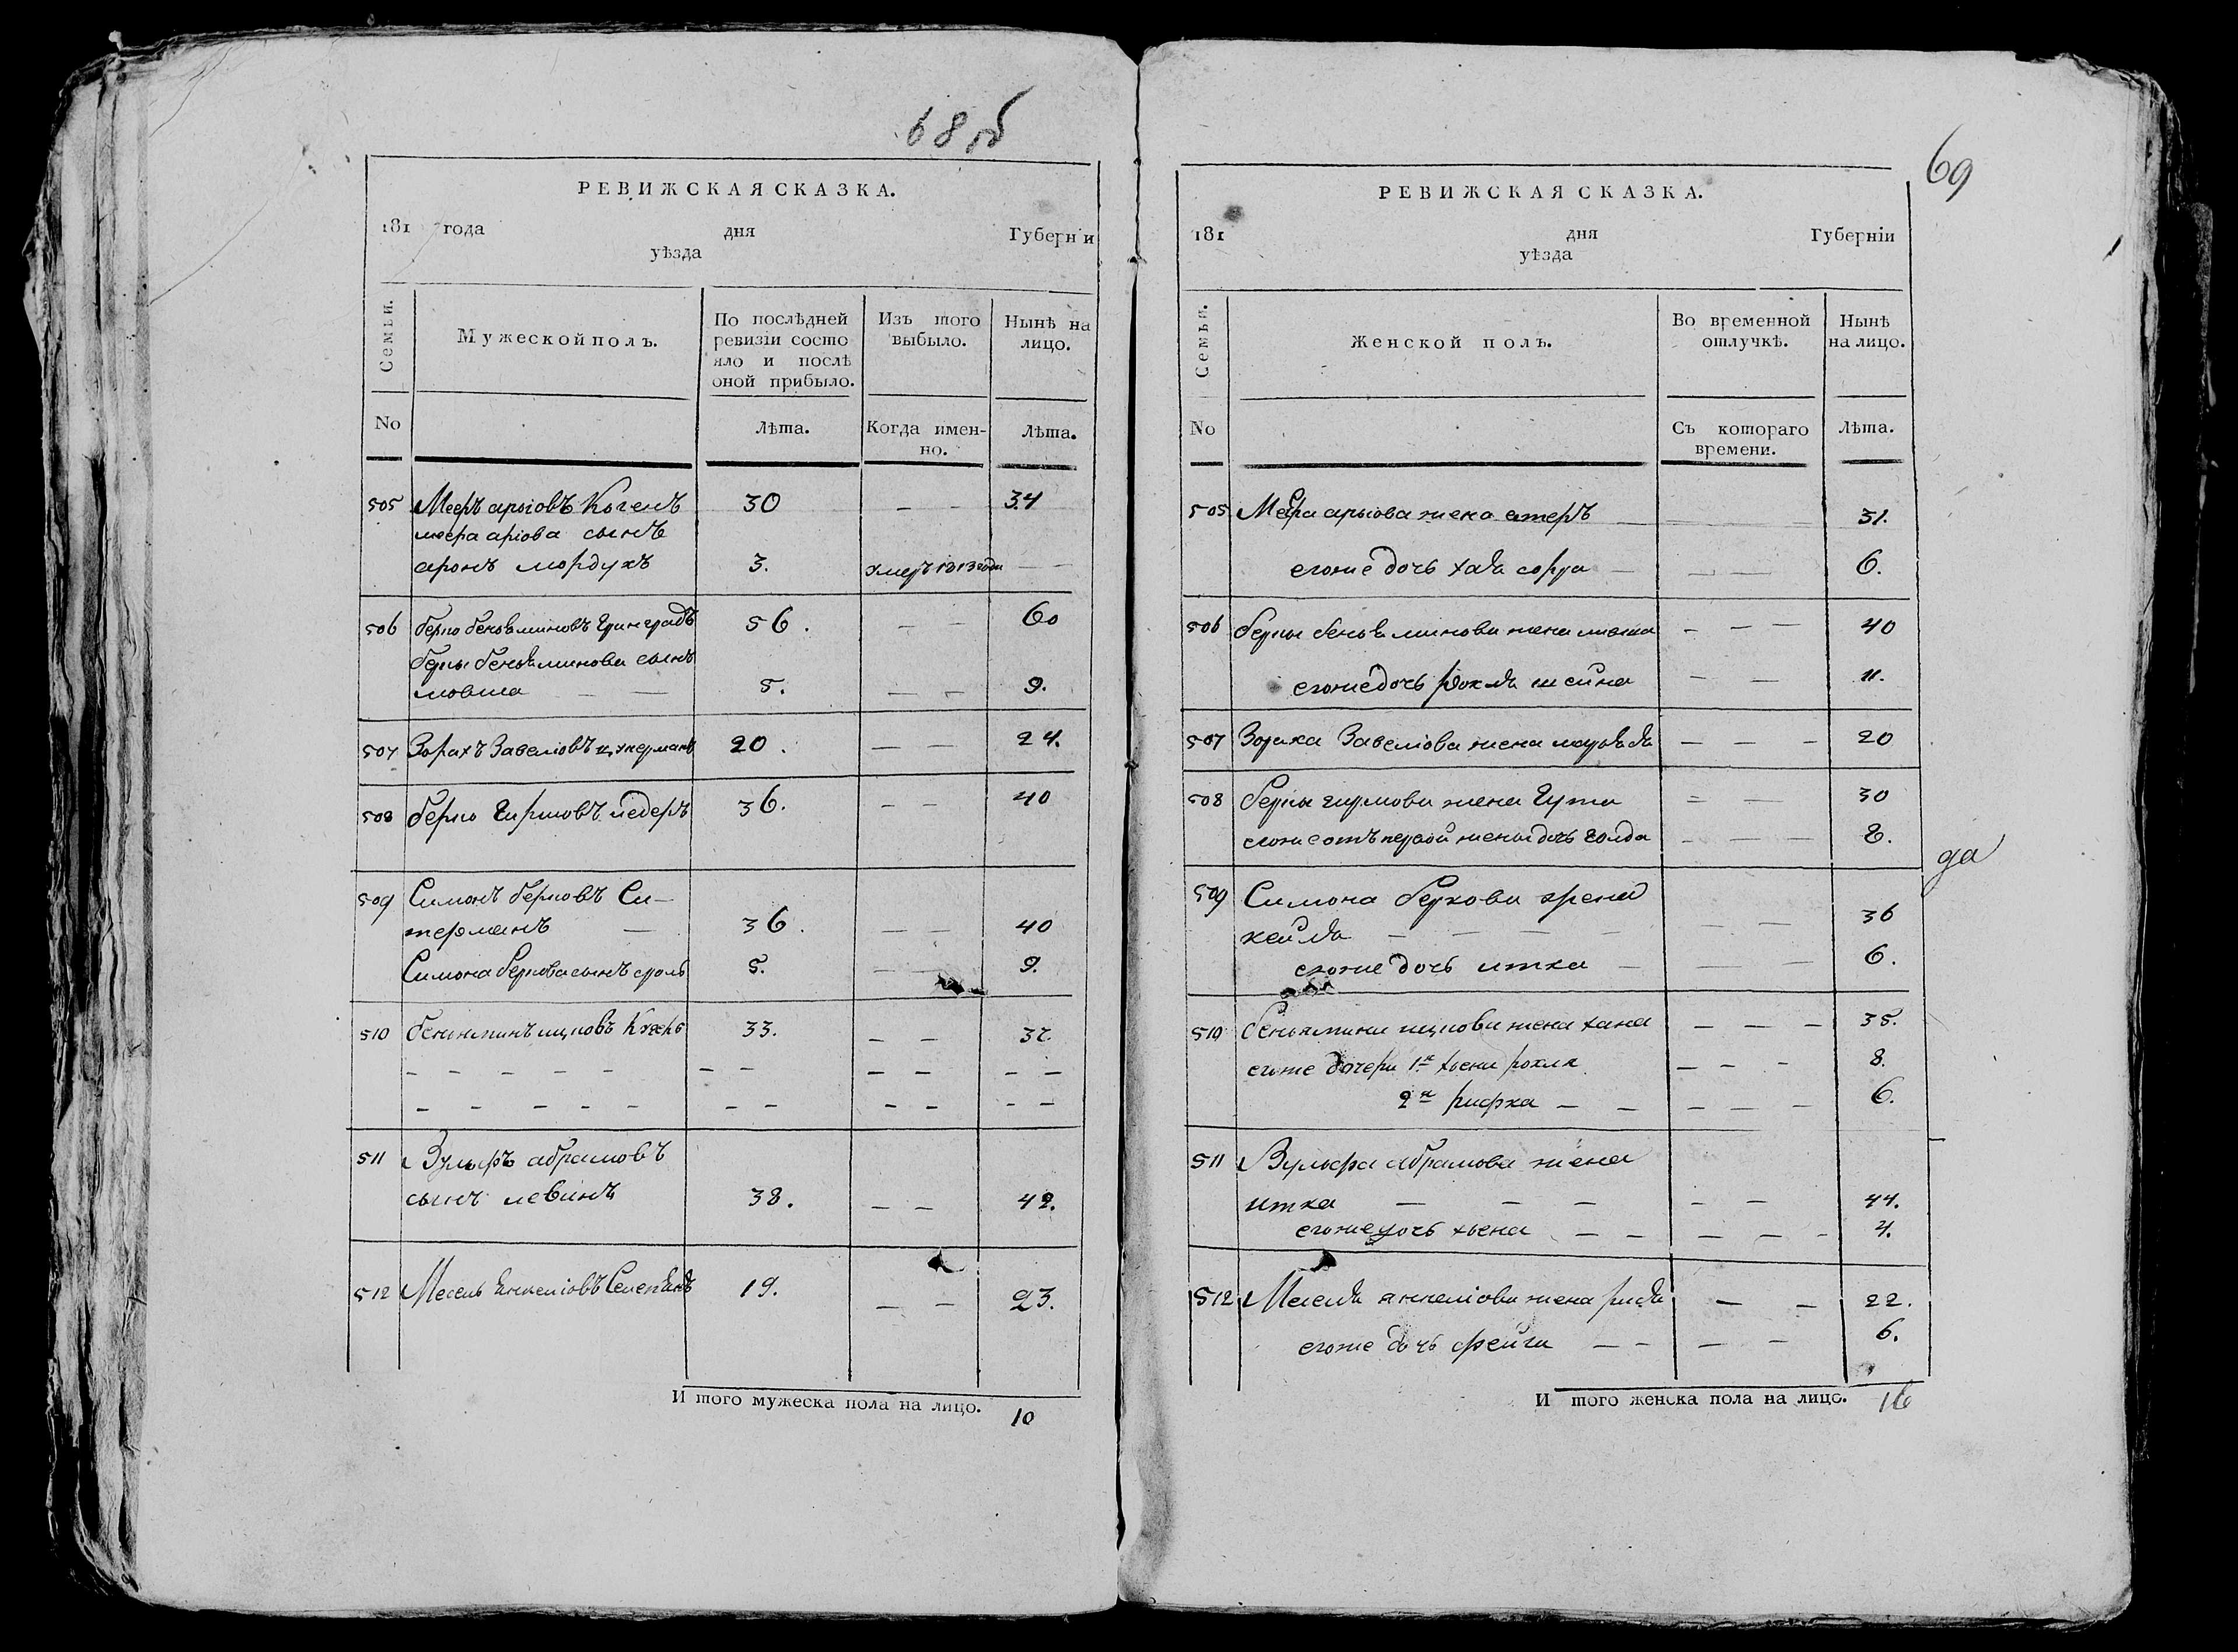 68 об
РЕВИЖСКАЯ СКАЗКА.
181 года дня Губерніи
уѣзда
Семьи.
Мужеской полъ.
По послѣдней ревизіи состо
яло и послѣ
оной прибыло.
Изъ того
выбыло.
Нынѣ на
лицо.
No
Лѣта.
Когда имен-
но.
Лѣта.
505 Мееръ арыовъ Когенъ 30 — — 34
меера аріова сынъ
аронъ мордухъ 3. умеръ 1813 года — —
506 берко беньяминовъ 56. — — 60
берки беньяминова сынъ
мовша — — 5. — — 9.
507 Зорахъ Завеліовъ цукерманъ 20. — — 24.
508 берко Гиршовъ 36. — — 40
509 Симонъ берковъ Си-
терманъ — 36. — — 40
Симона беркова сынъ сроль 5. — — 9.
510 беньяминъ ицковъ 33. — — 37.
— — — — — — — — — — —
— — — — — — — — — — —
511 Вульфъ абрамовъ
сынъ левинъ 38. — — 42.
512 Месель Янкеліовъ 19. — — 23.
И того мужеска пола на лицо. 10
69
РЕВИЖСКАЯ СКАЗКА.
181 дня Губерніи
уѣзда
Семьи.
Женской полъ.
Во временной
отлучкѣ.
Нынѣ
на лицо.
No
Съ котораго
времени.
Лѣта.
505 Меера арыова жена етеръ — — — 31.
егоже дочь хая сора — — — 6.
506 берки беньяминова жена — — — 40
егоже дочь рохля шейна — — 11.
507 Зораха Завеліова жена — — — 20
508 берки гиршова жена Гута — — 30
егоже отъ первой жены дочь голда — — — 8.
да
509 Симона беркова жена
кейля — — — — — — 36
егоже дочь итка — — — 6.
510 беньямина ицкова жена хана — — — 35.
егоже дочери 1я хьена рохля — — — 8.
2я рифка — — — — — 6.
511 Вульфа абрамова жена
итка — — — — — 44.
егоже дочь хьена — — — — — 4.
512 янкеліова жена — — 22.
егоже дочь фейга — — — — 6.
И того женска пола на лицо. 16